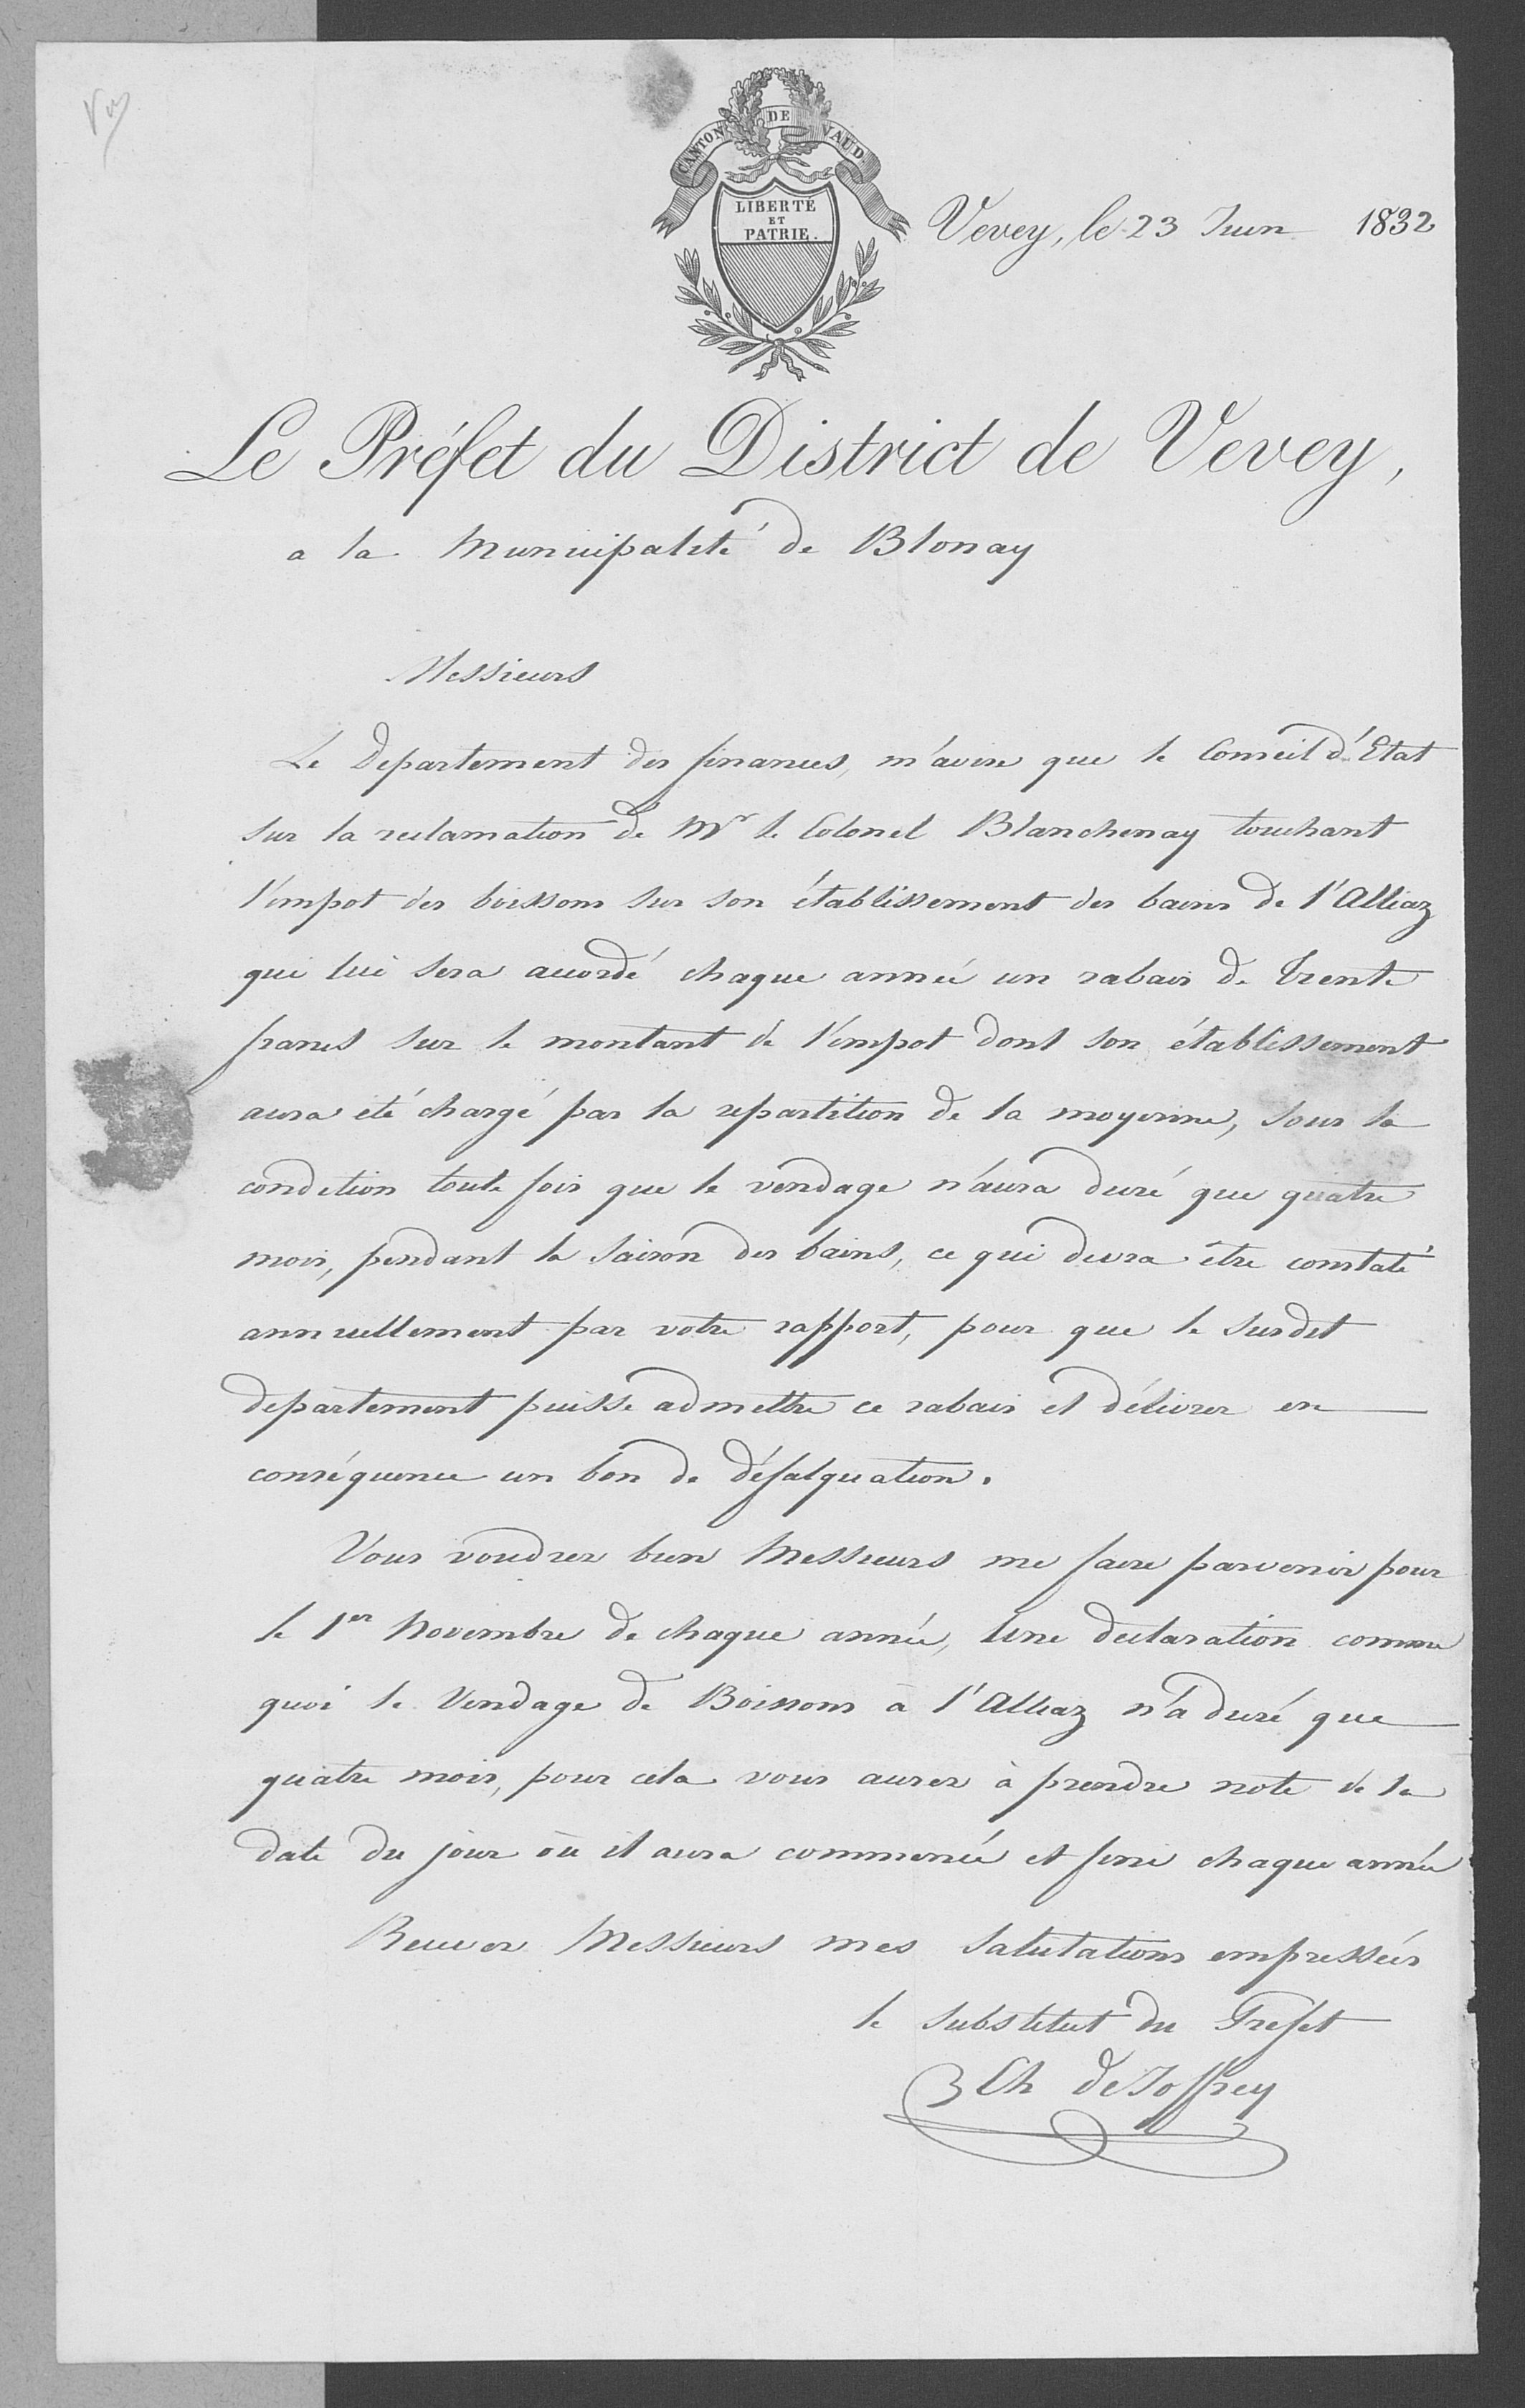 CANTON DE VAUD
LIBERTÉ
ET
PATRIE.
Vevey, le 23 Juin 1832
Le Préfet du District de Vevey,
a la Municipalité de Blonay
Messieurs
Le Departement des finances, m'avise que le Conseil d'Etat
sur la reclamation de Mr le Colonel Blanchenay touchant
l'impot des boissons sur son établissement des bains de l'Alliaz
qui lui sera accordé chaque année un rabais de trente
francs sur le montant de l'impot dont son établissement
aura été chargé par la repartition de la moyenne, sous la
condition toute fois que le vendage n'aura duré que quatre
mois, pendant la saison des bains, ce qui devra être constaté
annuellement par votre rapport, pour que le susdit
departement puisse admettre ce rabais et délivrer en
conséquence un bon de défalquation.
Vous voudrez bien Messieurs me faire parvenir pour
le 1er Novembre de chaque année, Une declaration comme
quoi le Vendage de Boissons à l'Alliaz n'a duré que
quatre mois, pour cela vous aurez à prendre note de la
date du jour où il aura commencé et fini chaque année
Recevez Messieurs mes Salutations empressées
le Substitut du Prefet
Ch de Joffrey